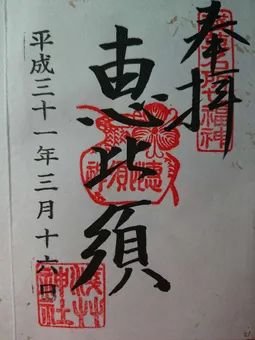 奉拝
恵比須
平成三十一年三月十六日
浅草
神社